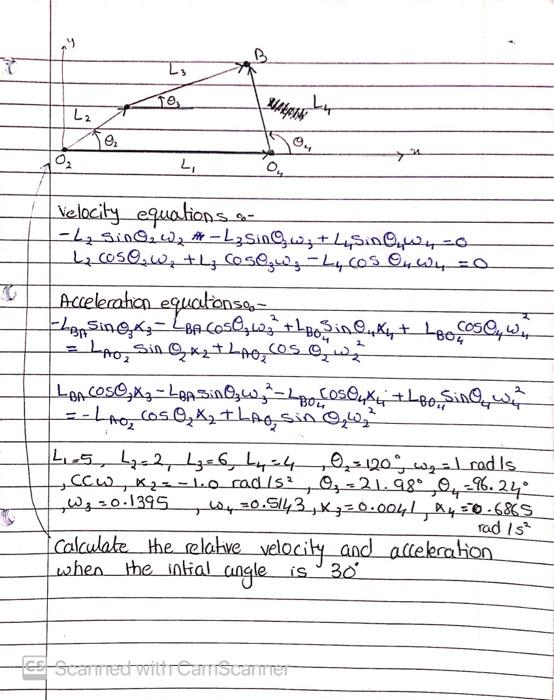 y
B
L3
L4
L2
θ3
θ2
θ4
x
O2
L1
O4
Velocity equations :-
-L2 sinθ2 ω2 - L3 sinθ3 ω3 + L4 sinθ4 ω4 = 0
L2 cosθ2 ω2 + L3 cosθ3 ω3 - L4 cos θ4 ω4 = 0
Acceleration equations :-
-LBA sinθ3 α3 - LBA cosθ3 ω3² + LBO4 sinθ4 α4 + LBO4 cosθ4 ω4²
= LAO2 sin θ2 α2 + LAO2 cos θ2 ω2²
LBA cosθ3 α3 - LBA sinθ3 ω3² - LBO4 cosθ4 α4 + LBO4 sinθ4 ω4²
= -LAO2 cos θ2 α2 + LAO2 sin θ2 ω2²
L1=5, L2=2, L3=6, L4=4, θ2=120°, ω2=1 rad/s
, CCW, α2=-1.0 rad/s², θ3=21.98°, θ4=96.24°
, ω3=0.1395, ω4=0.5143, α3=0.0041, α4=0.6865
rad/s²
Calculate the relative velocity and acceleration
when the intial angle is 30°
CS Scanned with CamScanner